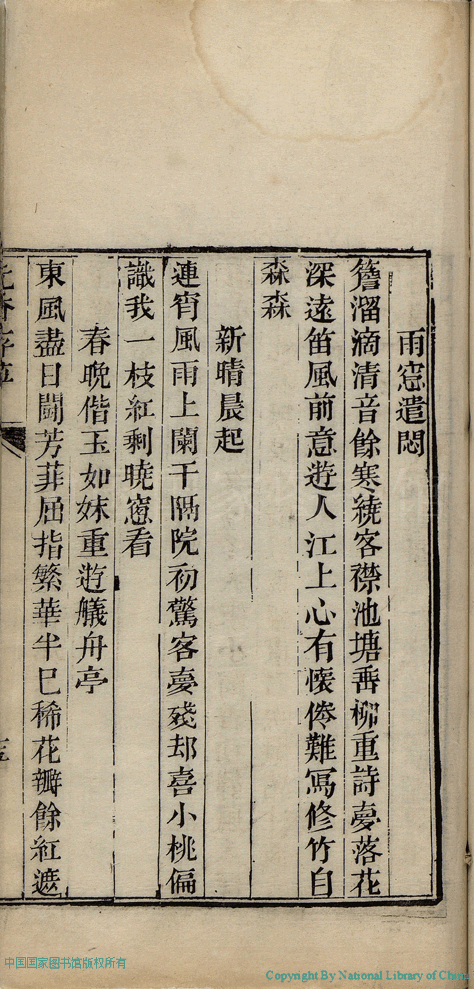 雨窻遣悶
簷溜滴清音餘寒繞客襟池塘垂柳重詩夢落花
深遠笛風前意遊人江上心有懷倦難寫修竹自
森森
新晴晨起
連宵風雨上闌干隔院初驚客夢殘却喜小桃偏
識我一枝紅剩曉窻看
春晚偕玉如妹重遊艤舟亭
東風盡日鬪芳菲屈指繁華半已稀花瓣餘紅遮
中国国家图书馆版权所有
Copyright By National Library of China